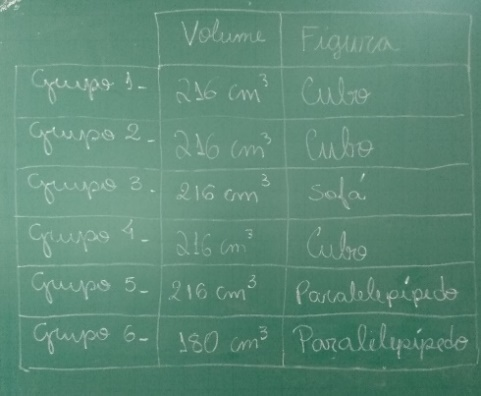 Volume Figura
Grupo 1- 216 cm³ Cubo
Grupo 2- 216 cm³ Cubo
Grupo 3- 216 cm³ Sofá
Grupo 4- 216 cm³ Cubo
Grupo 5- 216 cm³ Paralelepípedo
Grupo 6- 180 cm³ Paralelepípedo